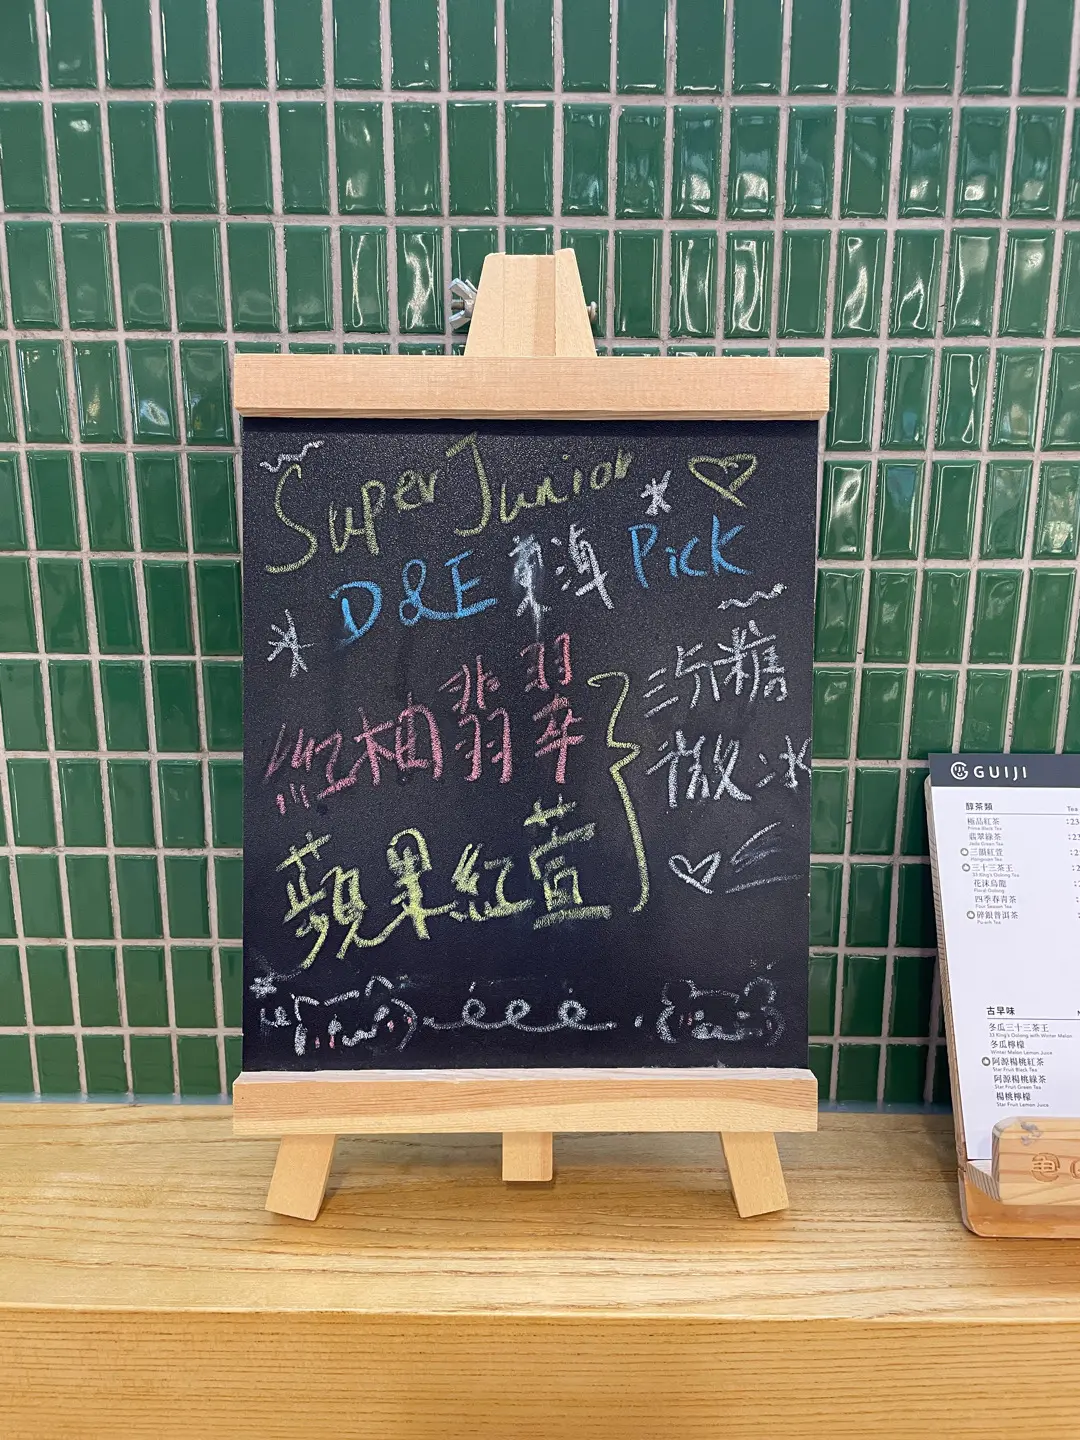 Super Junior
D&E 東海 Pick
紅柚翡翠
蘋果紅萱
三分糖
微冰
GUIJI
醇茶類 Tea
極品紅茶
Prime Black Tea
翡翠綠茶
Jade Green Tea
三韻紅萱
Hongxuan Tea
三十三茶王
33 King's Oolong Tea
花沫烏龍
Floral Oolong
四季春青茶
Four Season Tea
碎銀普洱茶
Pu-erh Tea
古早味
冬瓜三十三茶王
33 King's Oolong with Winter Melon
冬瓜檸檬
Winter Melon Lemon Juice
阿源楊桃紅茶
Star Fruit Black Tea
阿源楊桃綠茶
Star Fruit Green Tea
楊桃檸檬
Star Fruit Lemon Juice